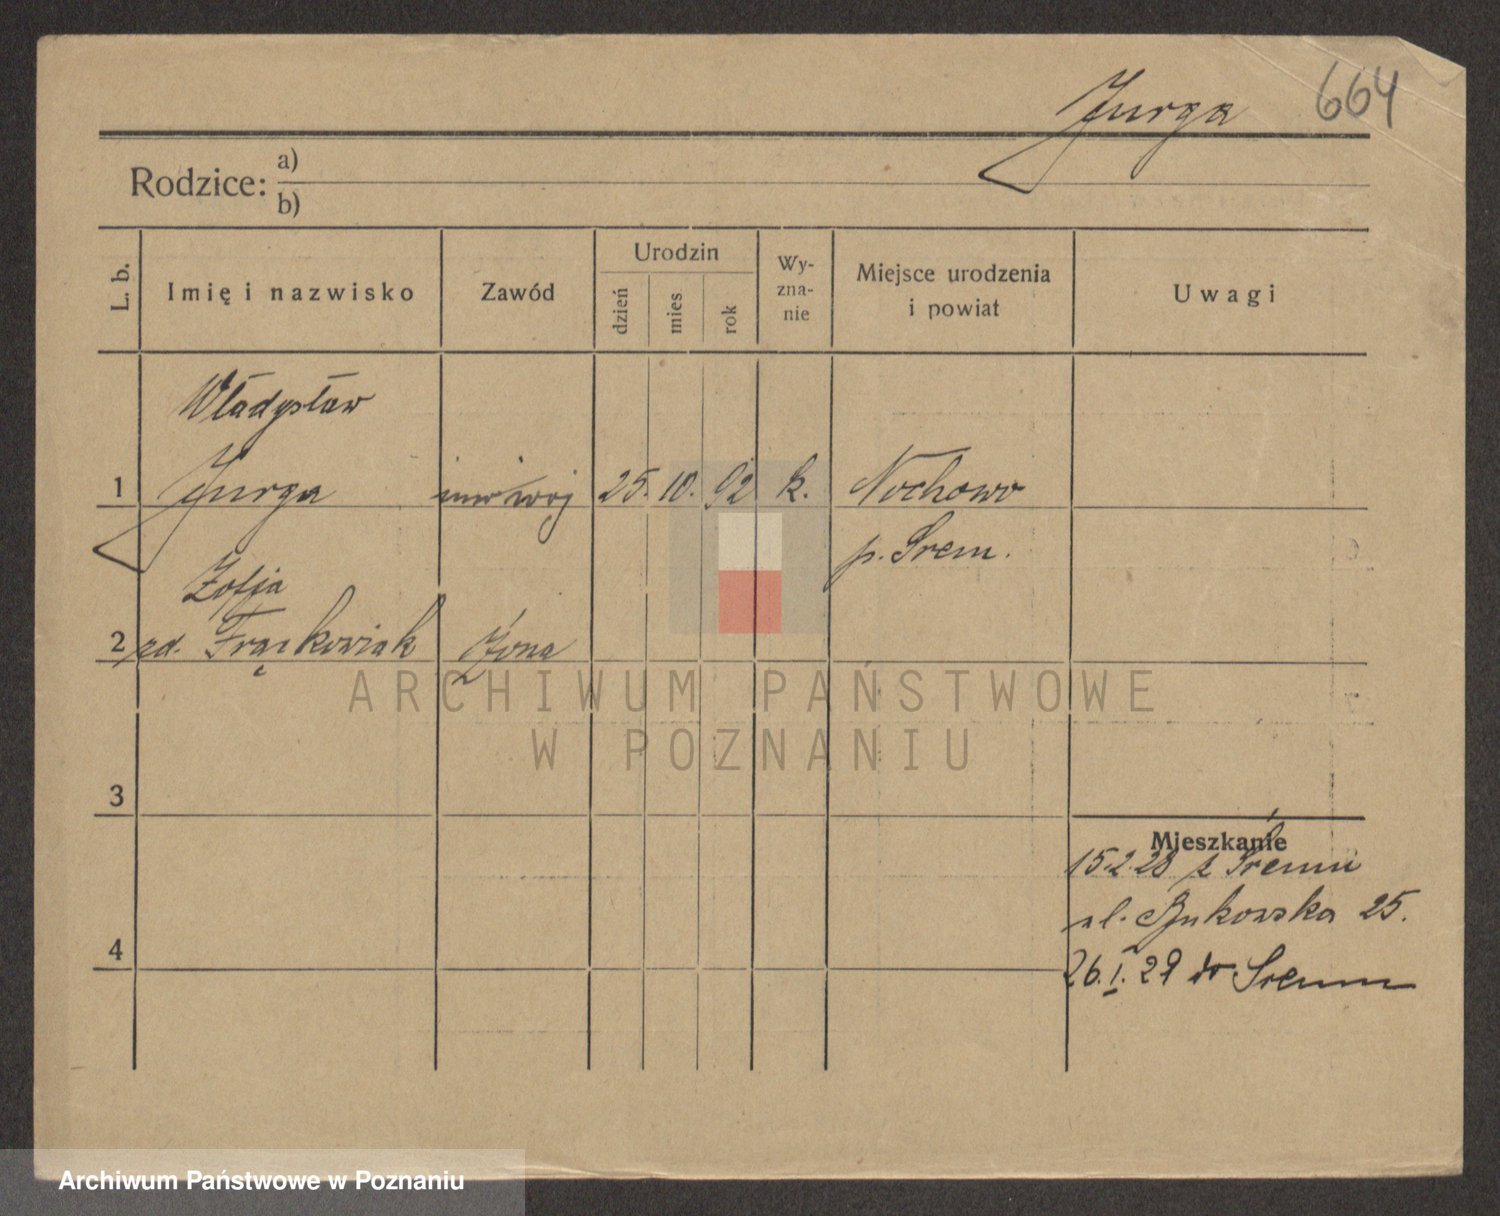 Jurga 664
Rodzice: a)
b)
L. b.
Imię i nazwisko
Zawód
Urodzin
dzień
mies
rok
Wy-
zna-
nie
Miejsce urodzenia
i powiat
Uwagi
Władysław
1 Jurga inw woj 25. 10. 92 k. Nochowo
p. Śrem.
Zofja
2 zd. Frąckowiak Żona
3
4
Mieszkanie
15.2.28 z Śremu
ul. Bukowska 25.
26.I.29 do Śremu
ARCHIWUM PAŃSTWOWE
W POZNANIU
Archiwum Państwowe w Poznaniu